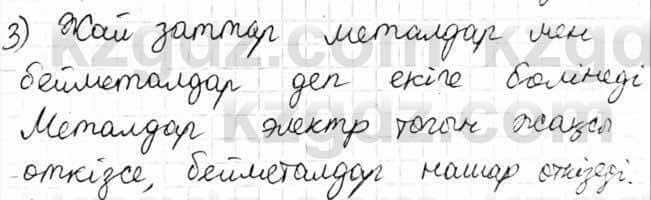 3) Жай заттар металдар мен
бейметалдар деп екіге бөлінеді
Металдар электр тогын жақсы
өткізсе, бейметалдар нашар өткізеді.